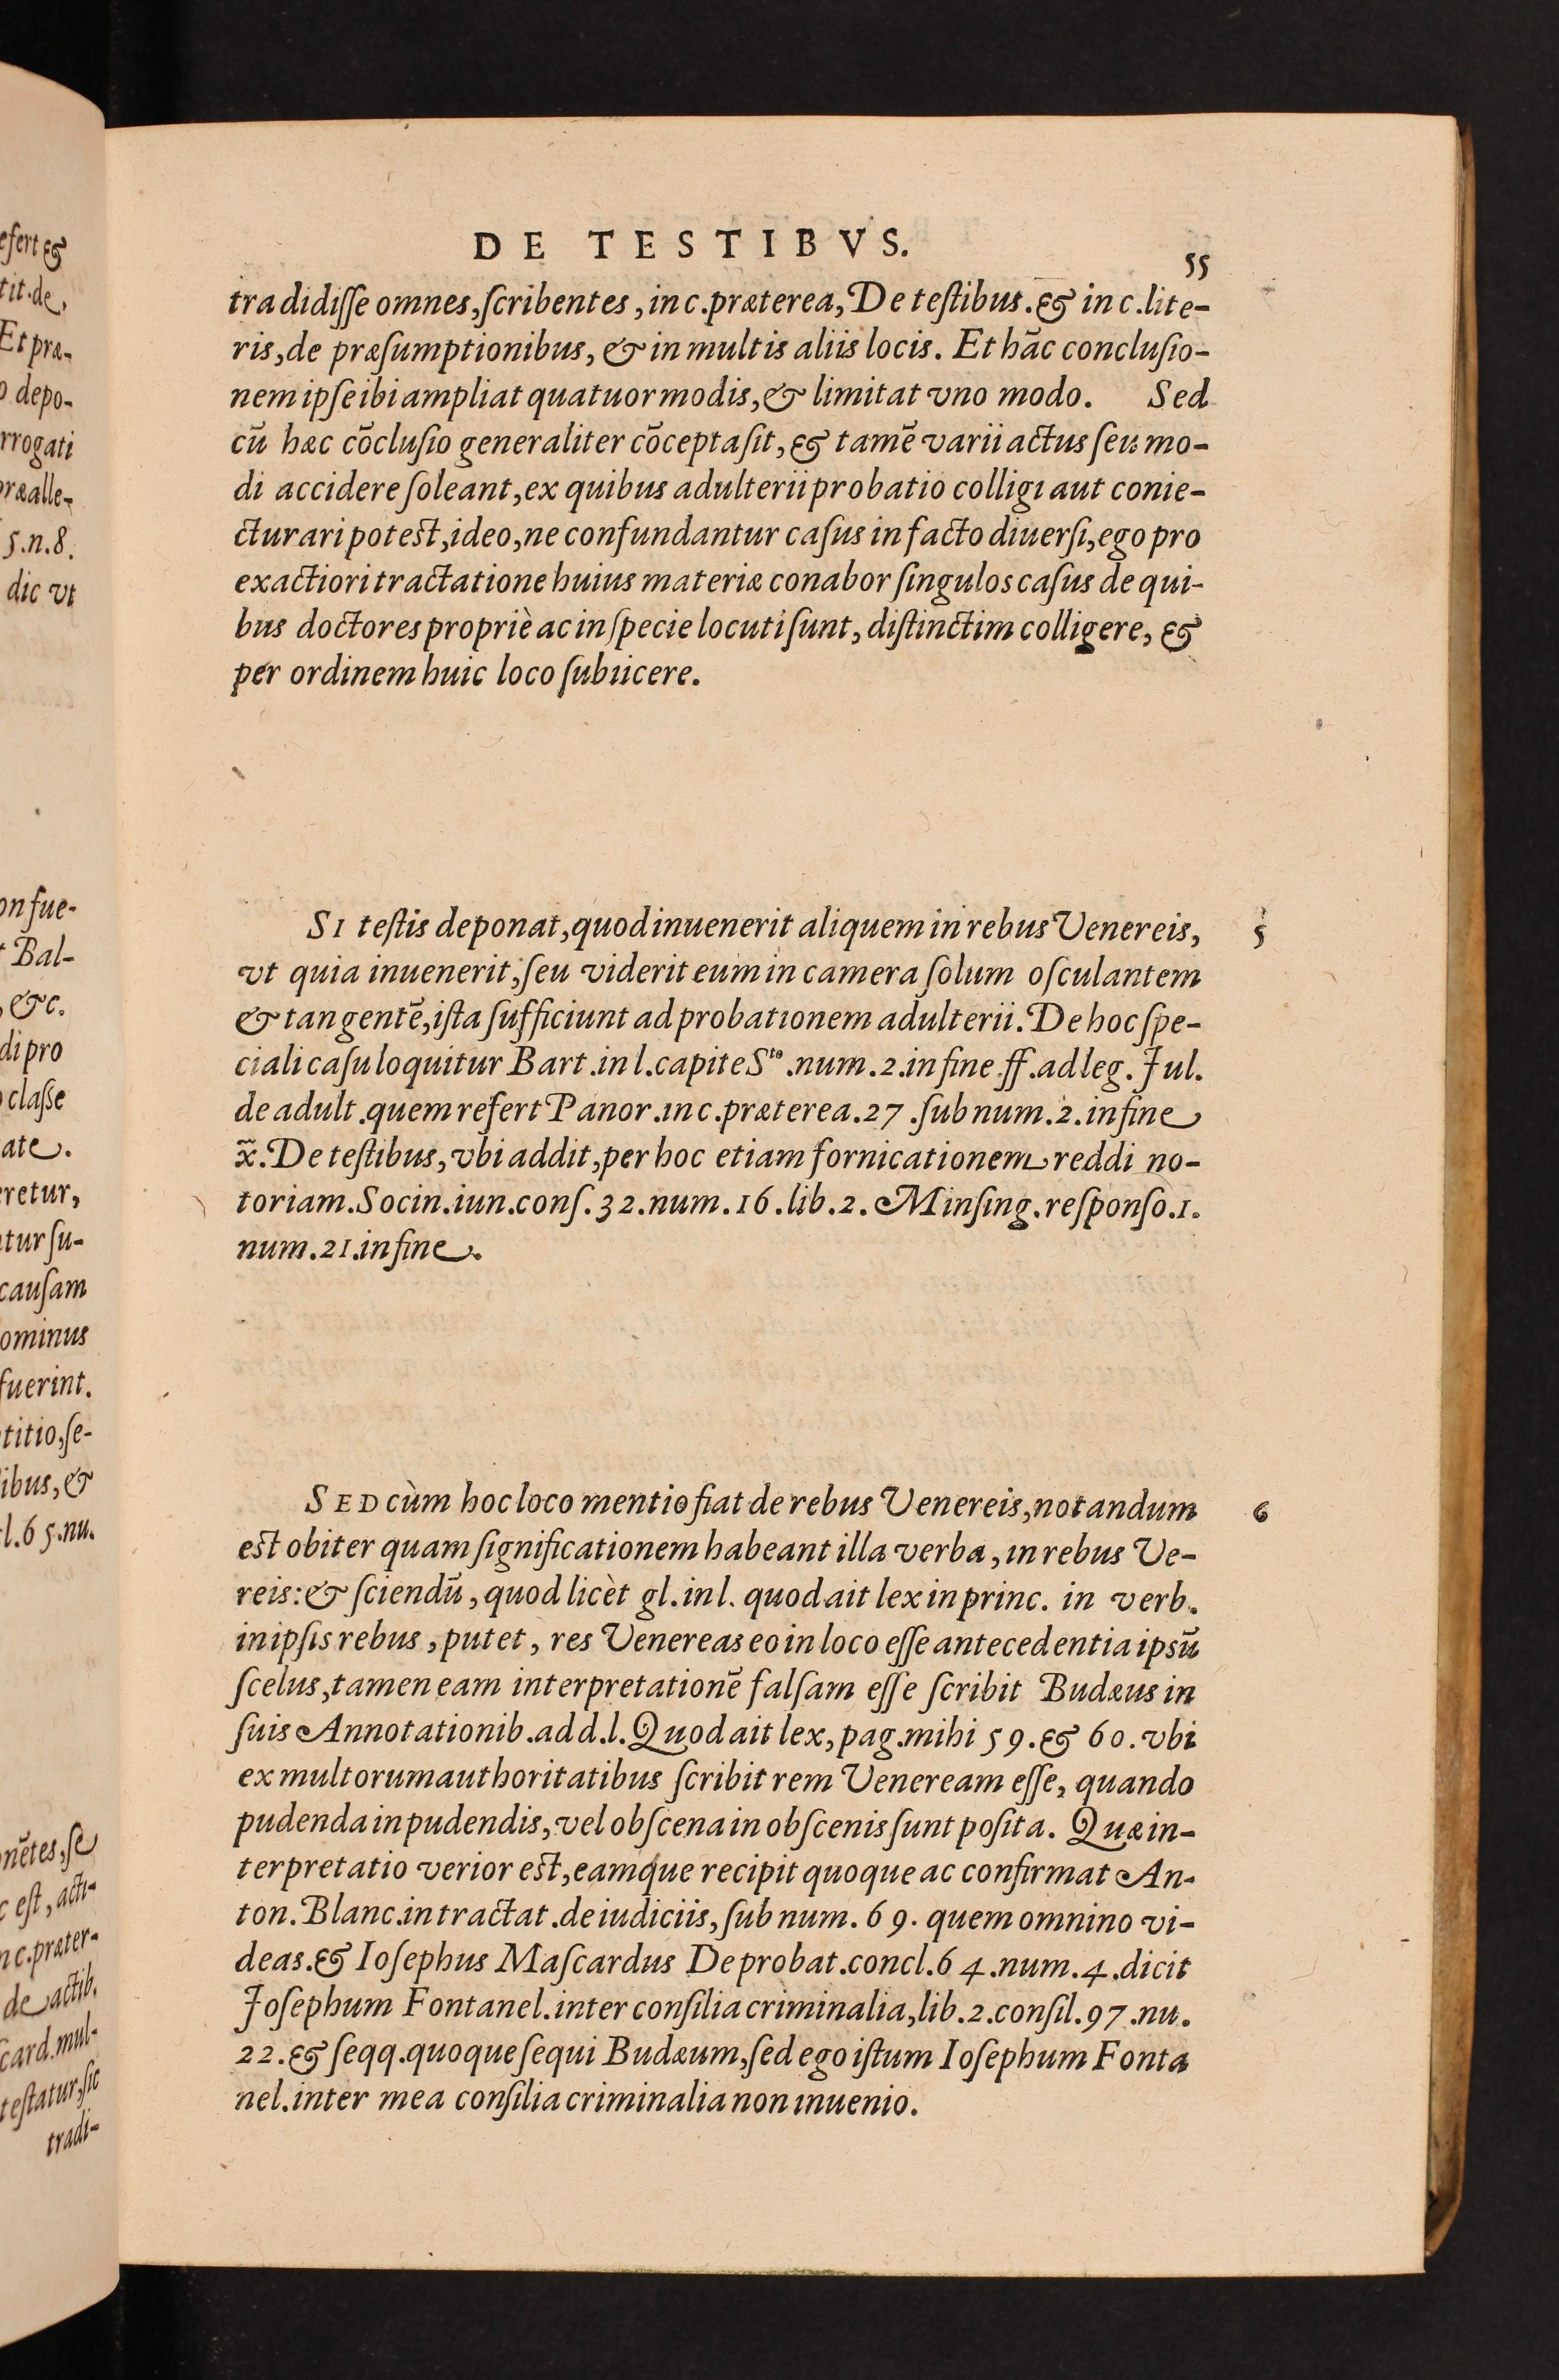 efert &
tit.de,
Et præ-
o depo-
rrogati
præalle-
5.n.8.
dic vt
on fue-
Bal-
, &c.
di pro
classe
ate.
eretur,
ntur ſu-
cauſam
ominus
fuerint.
titio,ſe-
libus, &
l.65.nu.
nẽtes,ſe
c eſt, acti-
n c.præter-
de actib.
card.mul-
teſtatur,ſic
tradi-
DE TESTIBVS.
55
tradidiſſe omnes,ſcribentes, in c.præterea, De teſtibus.& in c.lite-
ris,de præſumptionibus, & in multis aliis locis. Et hãc concluſio-
nem ipſe ibi ampliat quatuor modis,& limitat vno modo. Sed
cũ hæc cõcluſio generaliter cõcepta ſit, & tamẽ varii actus ſeu mo-
di accidere ſoleant,ex quibus adulterii probatio colligi aut conie-
cturari poteſt,ideo,ne confundantur caſus in facto diuerſi,ego pro
exactiori tractatione huius materiæ conabor ſingulos caſus de qui-
bus doctores propriè ac in ſpecie locuti ſunt, diſtinctim colligere, &
per ordinem huic loco ſubiicere.
SI teſtis deponat,quod inuenerit aliquem in rebus Venereis,
5
vt quia inuenerit,ſeu viderit eum in camera ſolum oſculantem
& tangentẽ,iſta ſufficiunt ad probationem adulterii. De hoc ſpe-
ciali caſu loquitur Bart.in l.capite Sto.num.2.in fine ff.ad leg. Jul.
de adult.quem refert Panor.in c.præterea.27.ſub num.2.in fine
x̃. De teſtibus, vbi addit,per hoc etiam fornicationem reddi no-
toriam.Socin.iun.conſ.32.num.16.lib.2. Minſing.reſponſo.1.
num.21.in fine.
SED cùm hoc loco mentio fiat de rebus Venereis,notandum
6
eſt obiter quam ſignificationem habeant illa verba, in rebus Ve-
reis:& ſciendũ, quod licèt gl.in l. quod ait lex in princ. in verb.
in ipſis rebus, putet, res Venereas eo in loco eſſe antecedentia ipsũ
ſcelus,tamen eam interpretationẽ falſam eſſe ſcribit Budæus in
ſuis Annotationib.ad d.l.Quod ait lex, pag.mihi 59.& 60.vbi
ex multorum authoritatibus ſcribit rem Veneream eſſe, quando
pudenda in pudendis, vel obſcena in obſcenis ſunt poſita. Quæ in-
terpretatio verior eſt,eamque recipit quoque ac confirmat An-
ton. Blanc.in tractat.de iudiciis, ſub num. 69. quem omnino vi-
deas.& Ioſephus Maſcardus De probat.concl.64.num.4.dicit
Joſephum Fontanel.inter conſilia criminalia,lib.2.conſil.97.nu.
22.& ſeqq.quoque ſequi Budæum,ſed ego iſtum Ioſephum Fonta
nel.inter mea conſilia criminalia non inuenio.